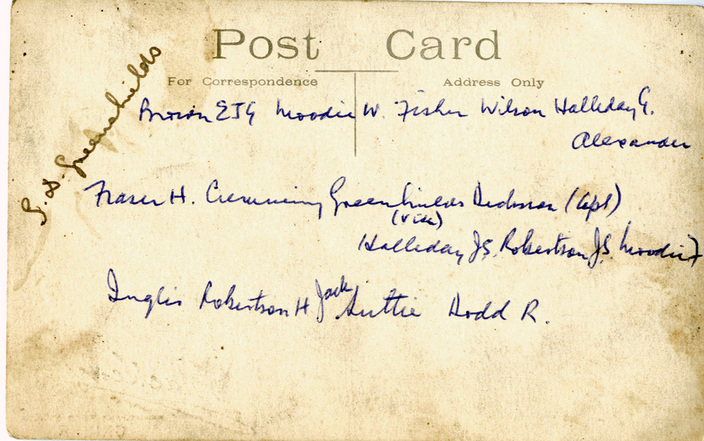 Post Card
For Correspondence Address Only
J. S. Greenshields
Brown EJG Moodie W. Fisher Wilson Halliday G.
Alexander
Fraser H. Cumming Greenshields Dickson (Capt)
(Vice)
Halliday J.S. Robertson J.S. Moodie
Inglis Robertson H Jack Suttie Dodd R.